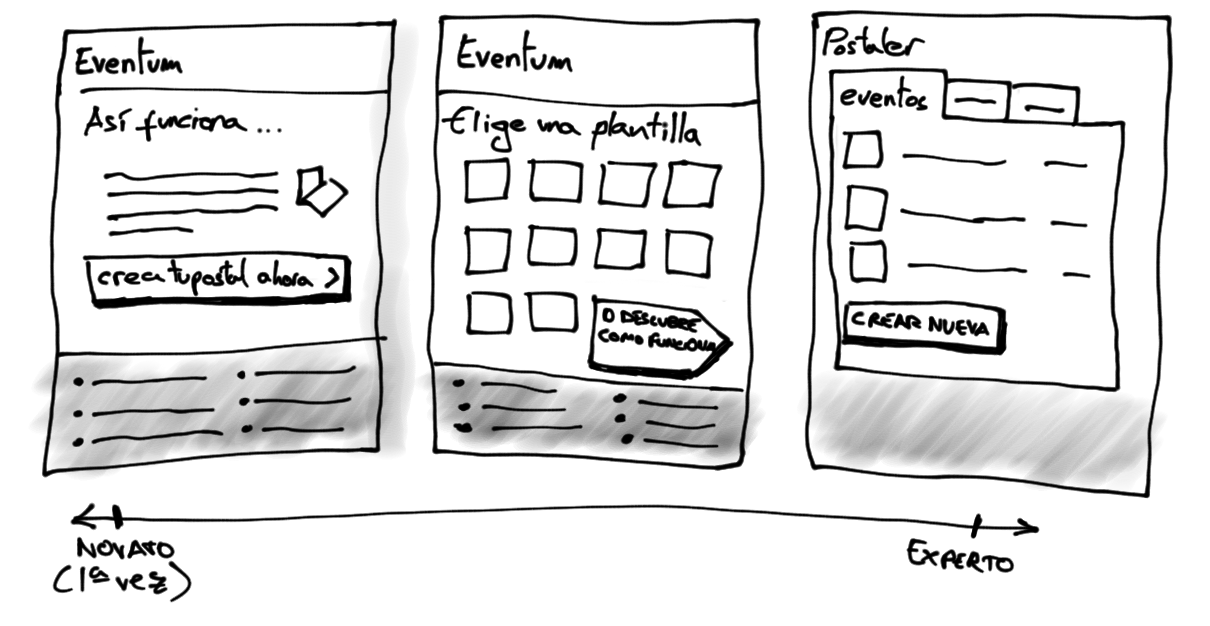 Eventum
Así funciona...
crea tu postal ahora >
Eventum
Elige una plantilla
O DESCUBRE
COMO FUNCIONA
Postaler
eventos
CREAR NUEVA
NOVATO
(1ª vez)
EXPERTO